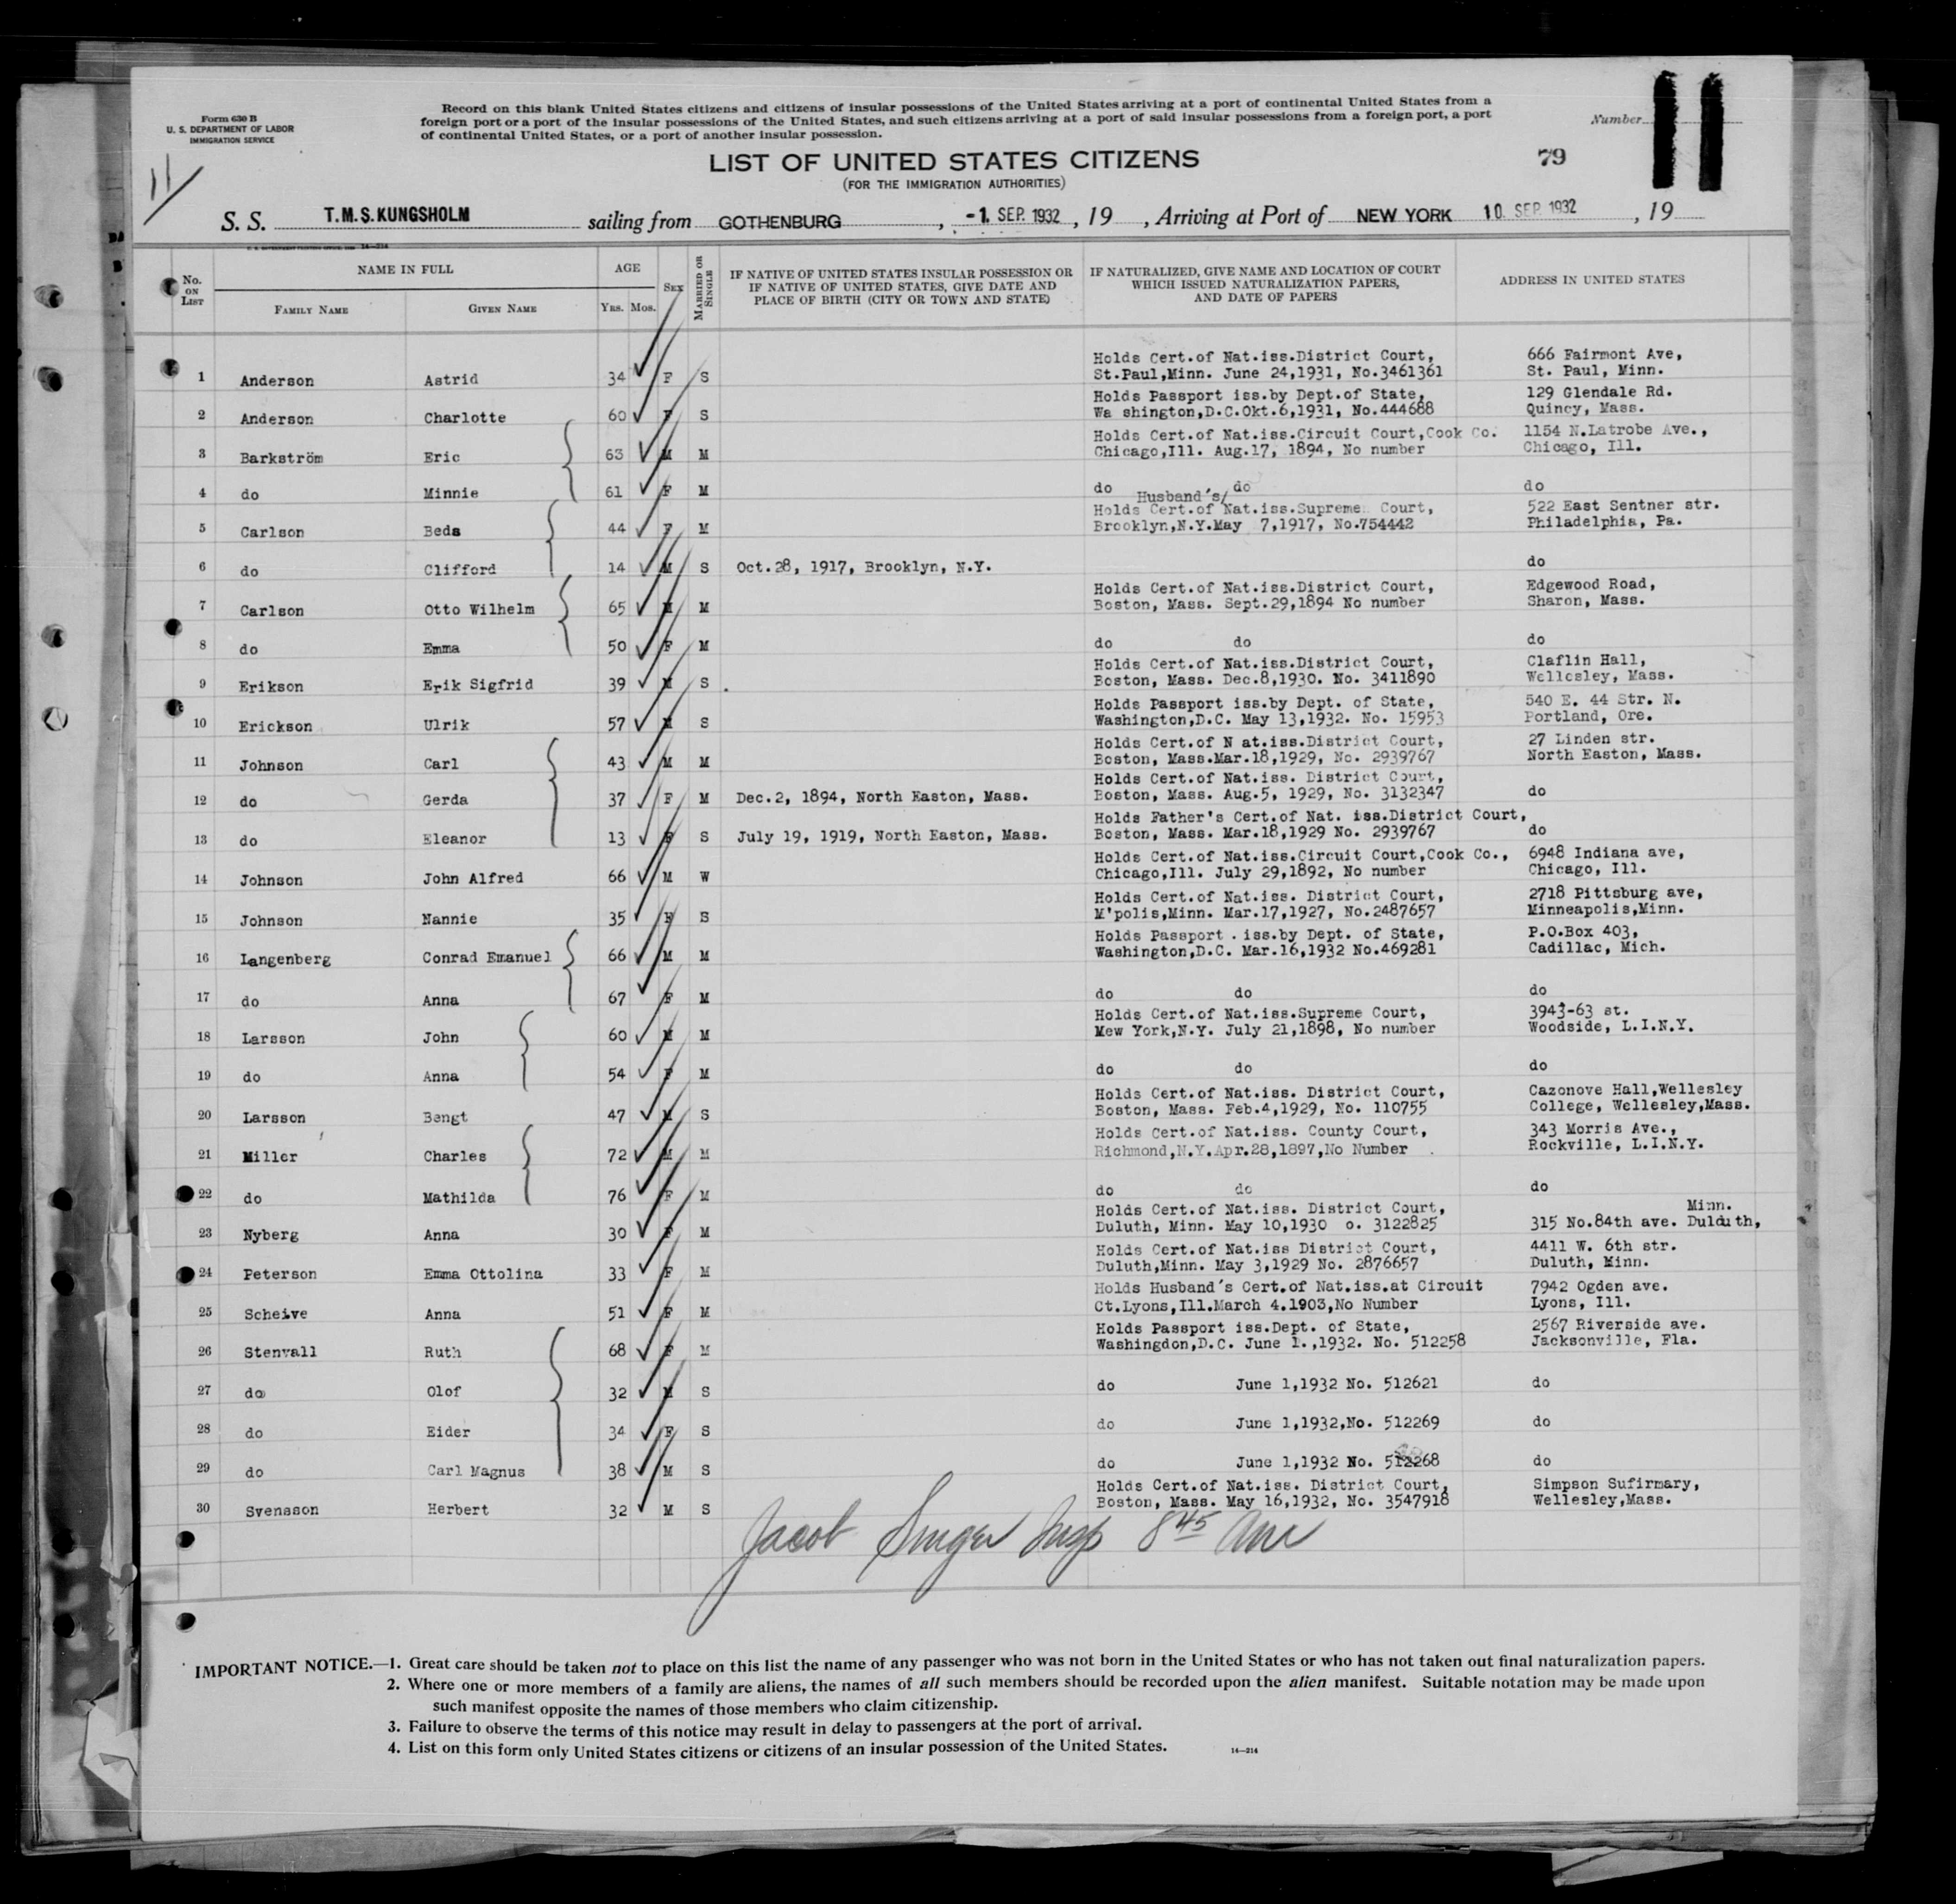 Form 630 B
U. S. DEPARTMENT OF LABOR
IMMIGRATION SERVICE
11
Record on this blank United States citizens and citizens of insular possessions of the United States arriving at a port of continental United States from a
foreign port or a port of the insular possessions of the United States, and such citizens arriving at a port of said insular possessions from a foreign port, a port
of continental United States, or a port of another insular possession.
Number 11
LIST OF UNITED STATES CITIZENS
79
(FOR THE IMMIGRATION AUTHORITIES)
S. S. T.M.S.KUNGSHOLM sailing from GOTHENBURG, -1. SEP. 1932, 19 , Arriving at Port of NEW YORK 10. SEP. 1932, 19
14—214
No. ON LIST NAME IN FULL AGE SEX MARRIED OR SINGLE IF NATIVE OF UNITED STATES INSULAR POSSESSION OR IF NATIVE OF UNITED STATES, GIVE DATE AND PLACE OF BIRTH (CITY OR TOWN AND STATE) IF NATURALIZED, GIVE NAME AND LOCATION OF COURT WHICH ISSUED NATURALIZATION PAPERS, AND DATE OF PAPERS ADDRESS IN UNITED STATES
FAMILY NAME GIVEN NAME YRS. MOS.
Holds Cert.of Nat.iss.District Court, 666 Fairmont Ave,
1 Anderson Astrid 34 F S St.Paul,Minn. June 24,1931, No.3461361 St. Paul, Minn.
Holds Passport iss.by Dept.of State, 129 Glendale Rd.
2 Anderson Charlotte 60 F S Wa shington,D.C.Okt.6,1931, No.444688 Quincy, Mass.
Holds Cert.of Nat.iss.Circuit Court,Cook Co. 1154 N.Latrobe Ave.,
3 Barkström Eric 63 M M Chicago,Ill. Aug.17, 1894, No number Chicago, Ill.
4 do Minnie 61 F M do do do
Husband's/
Holds Cert.of Nat.iss.Supreme Court, 522 East Sentner str.
5 Carlson Beda 44 F M Brooklyn,N.Y.May 7,1917, No.754442 Philadelphia, Pa.
6 do Clifford 14 M S Oct.28, 1917, Brooklyn, N.Y. do
Holds Cert.of Nat.iss.District Court, Edgewood Road,
7 Carlson Otto Wilhelm 65 M M Boston, Mass. Sept.29,1894 No number Sharon, Mass.
8 do Emma 50 F M do do do
Holds Cert.of Nat.iss.District Court, Claflin Hall,
9 Erikson Erik Sigfrid 39 M S Boston, Mass. Dec.8,1930. No. 3411890 Wellesley, Mass.
Holds Passport iss.by Dept. of State, 540 E. 44 Str. N.
10 Erickson Ulrik 57 M S Washington,D.C. May 13,1932. No. 15953 Portland, Ore.
Holds Cert.of N at.iss.District Court, 27 Linden str.
11 Johnson Carl 43 M M Boston, Mass.Mar.18,1929, No. 2939767 North Easton, Mass.
Holds Cert.of Nat.iss. District Court,
12 do Gerda 37 F M Dec.2, 1894, North Easton, Mass. Boston, Mass. Aug.5, 1929, No. 3132347 do
Holds Father's Cert.of Nat. iss.District Court,
13 do Eleanor 13 F S July 19, 1919, North Easton, Mass. Boston, Mass. Mar.18,1929 No. 2939767 do
Holds Cert.of Nat.iss.Circuit Court,Cook Co., 6948 Indiana ave,
14 Johnson John Alfred 66 M W Chicago,Ill. July 29,1892, No number Chicago, Ill.
Holds Cert.of Nat.iss. District Court, 2718 Pittsburg ave,
15 Johnson Nannie 35 F S M'polis,Minn. Mar.17,1927, No.2487657 Minneapolis,Minn.
Holds Passport . iss.by Dept. of State, P.O.Box 403,
16 Langenberg Conrad Emanuel 66 M M Washington,D.C. Mar.16,1932 No.469281 Cadillac, Mich.
17 do Anna 67 F M do do do
Holds Cert.of Nat.iss.Supreme Court, 3943-63 st.
18 Larsson John 60 M M Mew York,N.Y. July 21,1898, No number Woodside, L.I.N.Y.
19 do Anna 54 F M do do do
Holds Cert.of Nat.iss. District Court, Cazonove Hall,Wellesley
20 Larsson Bengt 47 M S Boston, Mass. Feb.4,1929, No. 110755 College, Wellesley,Mass.
Holds Cert.of Nat.iss. County Court, 343 Morris Ave.,
21 Miller Charles 72 M M Richmond,N.Y.Apr.28,1897,No Number Rockville, L.I.N.Y.
22 do Mathilda 76 F M do do do
Holds Cert.of Nat.iss. District Court, Minn.
23 Nyberg Anna 30 F M Duluth, Minn. May 10,1930 o. 3122825 315 No.84th ave. Duluth,
Holds Cert.of Nat.iss District Court, 4411 W. 6th str.
24 Peterson Emma Ottolina 33 F M Duluth,Minn. May 3,1929 No. 2876657 Duluth, Minn.
Holds Husband's Cert.of Nat.iss.at Circuit 7942 Ogden ave.
25 Scheive Anna 51 F M Ct.Lyons,Ill.March 4.1903,No Number Lyons, Ill.
Holds Passport iss.Dept. of State, 2567 Riverside ave.
26 Stenvall Ruth 68 F M Washingdon,D.C. June 1.,1932. No. 512258 Jacksonville, Fla.
27 do Olof 32 M S do June 1,1932 No. 512621 do
28 do Eider 34 F S do June 1,1932,No. 512269 do
29 do Carl Magnus 38 M S do June 1,1932 No. 512268 do
Holds Cert.of Nat.iss. District Court, Simpson Sufirmary,
30 Svensson Herbert 32 M S Boston, Mass. May 16,1932, No. 3547918 Wellesley,Mass.
Jacob Singer Insp 8 45 Am
IMPORTANT NOTICE.—1. Great care should be taken not to place on this list the name of any passenger who was not born in the United States or who has not taken out final naturalization papers.
2. Where one or more members of a family are aliens, the names of all such members should be recorded upon the alien manifest. Suitable notation may be made upon
such manifest opposite the names of those members who claim citizenship.
3. Failure to observe the terms of this notice may result in delay to passengers at the port of arrival.
4. List on this form only United States citizens or citizens of an insular possession of the United States.
14—214